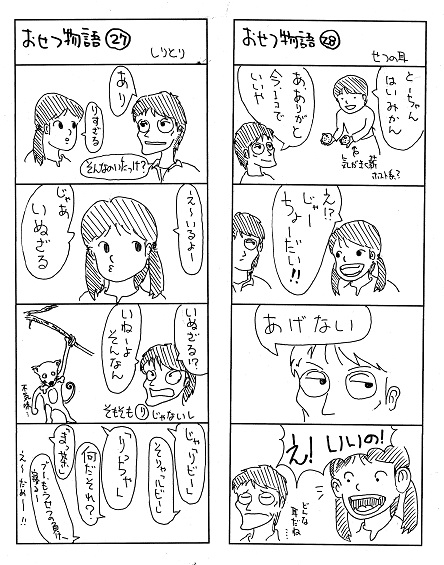 おせつ物語 ㉗
しりとり
あり
りすざる
そんなのいたっけ?
え〜いるよー
じゃあ
いぬざる
いぬざる!?
いねーよ
そんなん
不気味
そもそもⓇじゃないし
じゃ「リビー」
そりゃ「ルビー」
「りっちゃ」
何だそれ?
「まっ茶」
え〜だめー!!
おせつ物語 ㉘
せつの耳
とーちゃん
はいみかん
あ、ありがと
今、1コで
いいや
え!?
じゃー
ちょーだい!!
あげない
え!いいの!
どんな
耳だね…